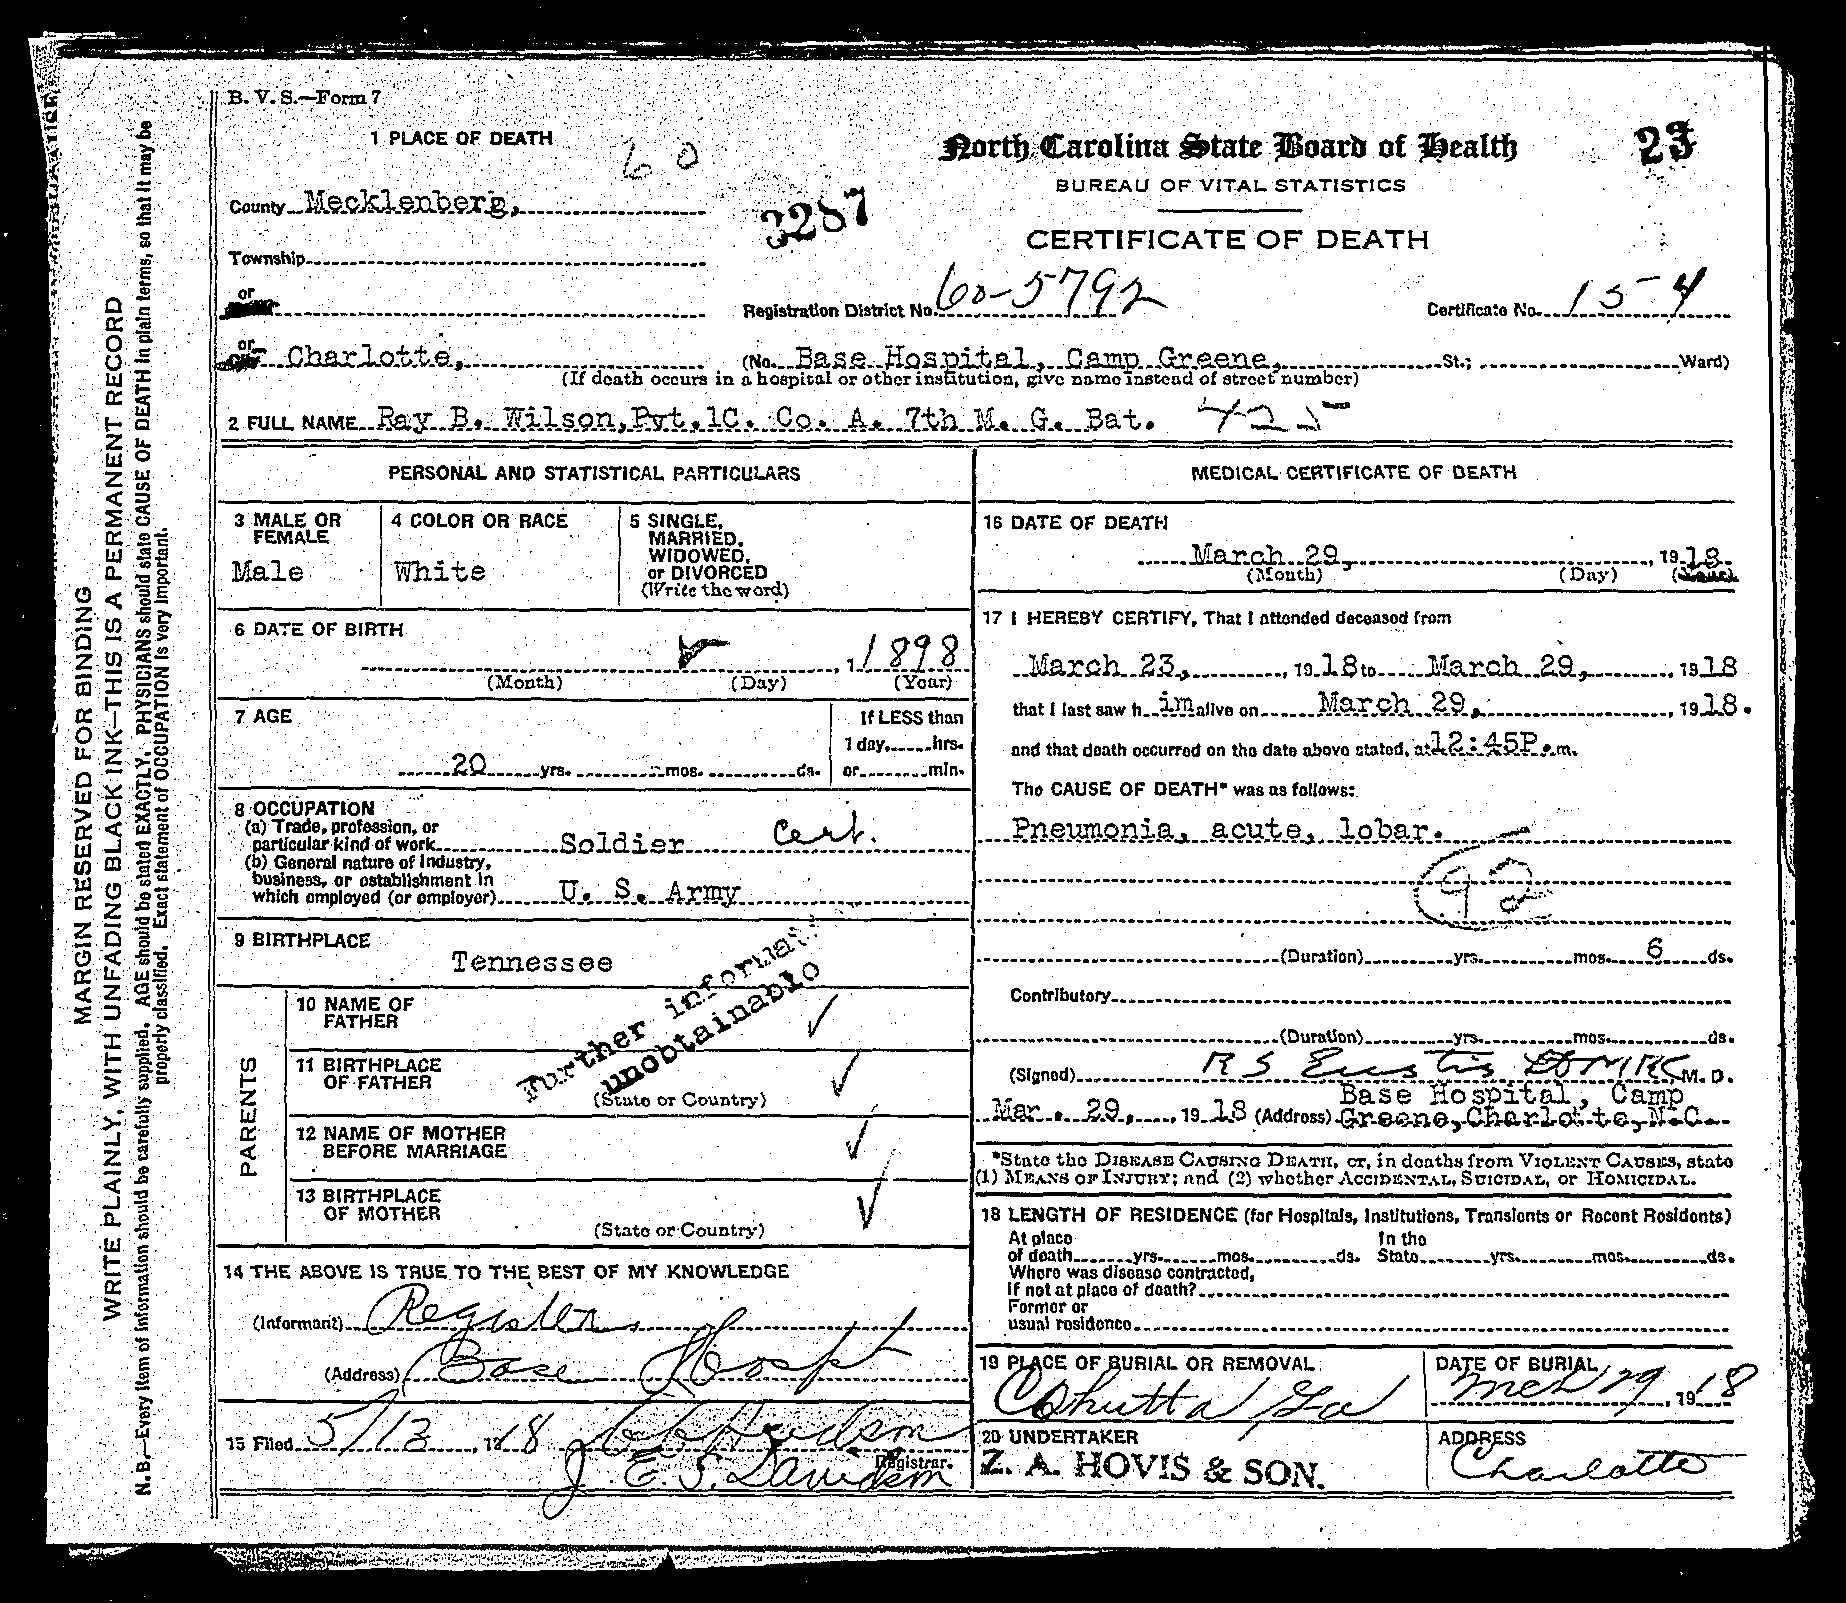 B. V. S.—Form 7
1 PLACE OF DEATH
60
North Carolina State Board of Health
23
BUREAU OF VITAL STATISTICS
County Mecklenberg,
3287
CERTIFICATE OF DEATH
Township
or
Registration District No. 60-5792
Certificate No. 154
or
City Charlotte, (No. Base Hospital, Camp Greene, St.; Ward)
(If death occurs in a hospital or other institution, give name instead of street number)
2 FULL NAME Ray B. Wilson, Pvt.1C. Co. A. 7th M. G. Bat. 425
PERSONAL AND STATISTICAL PARTICULARS
3 MALE OR
FEMALE
Male
4 COLOR OR RACE
White
5 SINGLE,
MARRIED,
WIDOWED,
or DIVORCED
(Write the word)
6 DATE OF BIRTH
, 1 1898
(Month) (Day) (Year)
7 AGE
20 yrs. mos. ds.
If LESS than
1 day, hrs.
or min.
8 OCCUPATION
(a) Trade, profession, or
particular kind of work Soldier Cert.
(b) General nature of Industry,
business, or establishment in
which employed (or employer) U. S. Army
9 BIRTHPLACE
Tennessee
Further informat.
unobtainable
PARENTS
10 NAME OF
FATHER
11 BIRTHPLACE
OF FATHER
(State or Country)
12 NAME OF MOTHER
BEFORE MARRIAGE
13 BIRTHPLACE
OF MOTHER
(State or Country)
14 THE ABOVE IS TRUE TO THE BEST OF MY KNOWLEDGE
(Informant) Register
(Address) Base Hospt
15 Filed 5/13, 1918
Registrar.
J. E. S. Davidson
MEDICAL CERTIFICATE OF DEATH
16 DATE OF DEATH
March 29, , 1918
(Month) (Day)
17 I HEREBY CERTIFY, That I attended deceased from
March 23, , 1918 to March 29, , 1918
that I last saw h im alive on March 29, , 1918.
and that death occurred on the date above stated, at 12:45P.m.
The CAUSE OF DEATH* was as follows:
Pneumonia, acute, lobar.
92
(Duration) yrs. mos. 6 ds.
Contributory
(Duration) yrs. mos. ds.
(Signed) R S Eustis M. D.
Mar. 29, , 1918 (Address) Base Hospital, Camp
Greene, Charlotte, N.C.
*State the DISEASE CAUSING DEATH, or, in deaths from VIOLENT CAUSES, state
(1) MEANS OF INJURY; and (2) whether ACCIDENTAL, SUICIDAL, or HOMICIDAL.
18 LENGTH OF RESIDENCE (for Hospitals, Institutions, Transients or Recent Residents)
At place
of death yrs. mos. ds.
In the
State yrs. mos. ds.
Where was disease contracted,
If not at place of death?
Former or
usual residence
19 PLACE OF BURIAL OR REMOVAL
Cohutta, Ga
DATE OF BURIAL
Mch 29, 1918
20 UNDERTAKER
Z. A. HOVIS & SON.
ADDRESS
Charlotte
MARGIN RESERVED FOR BINDING
WRITE PLAINLY, WITH UNFADING BLACK INK—THIS IS A PERMANENT RECORD
N. B.—Every item of information should be carefully supplied. AGE should be stated EXACTLY. PHYSICIANS should state CAUSE OF DEATH in plain terms, so that it may be
properly classified. Exact statement of OCCUPATION is very important.